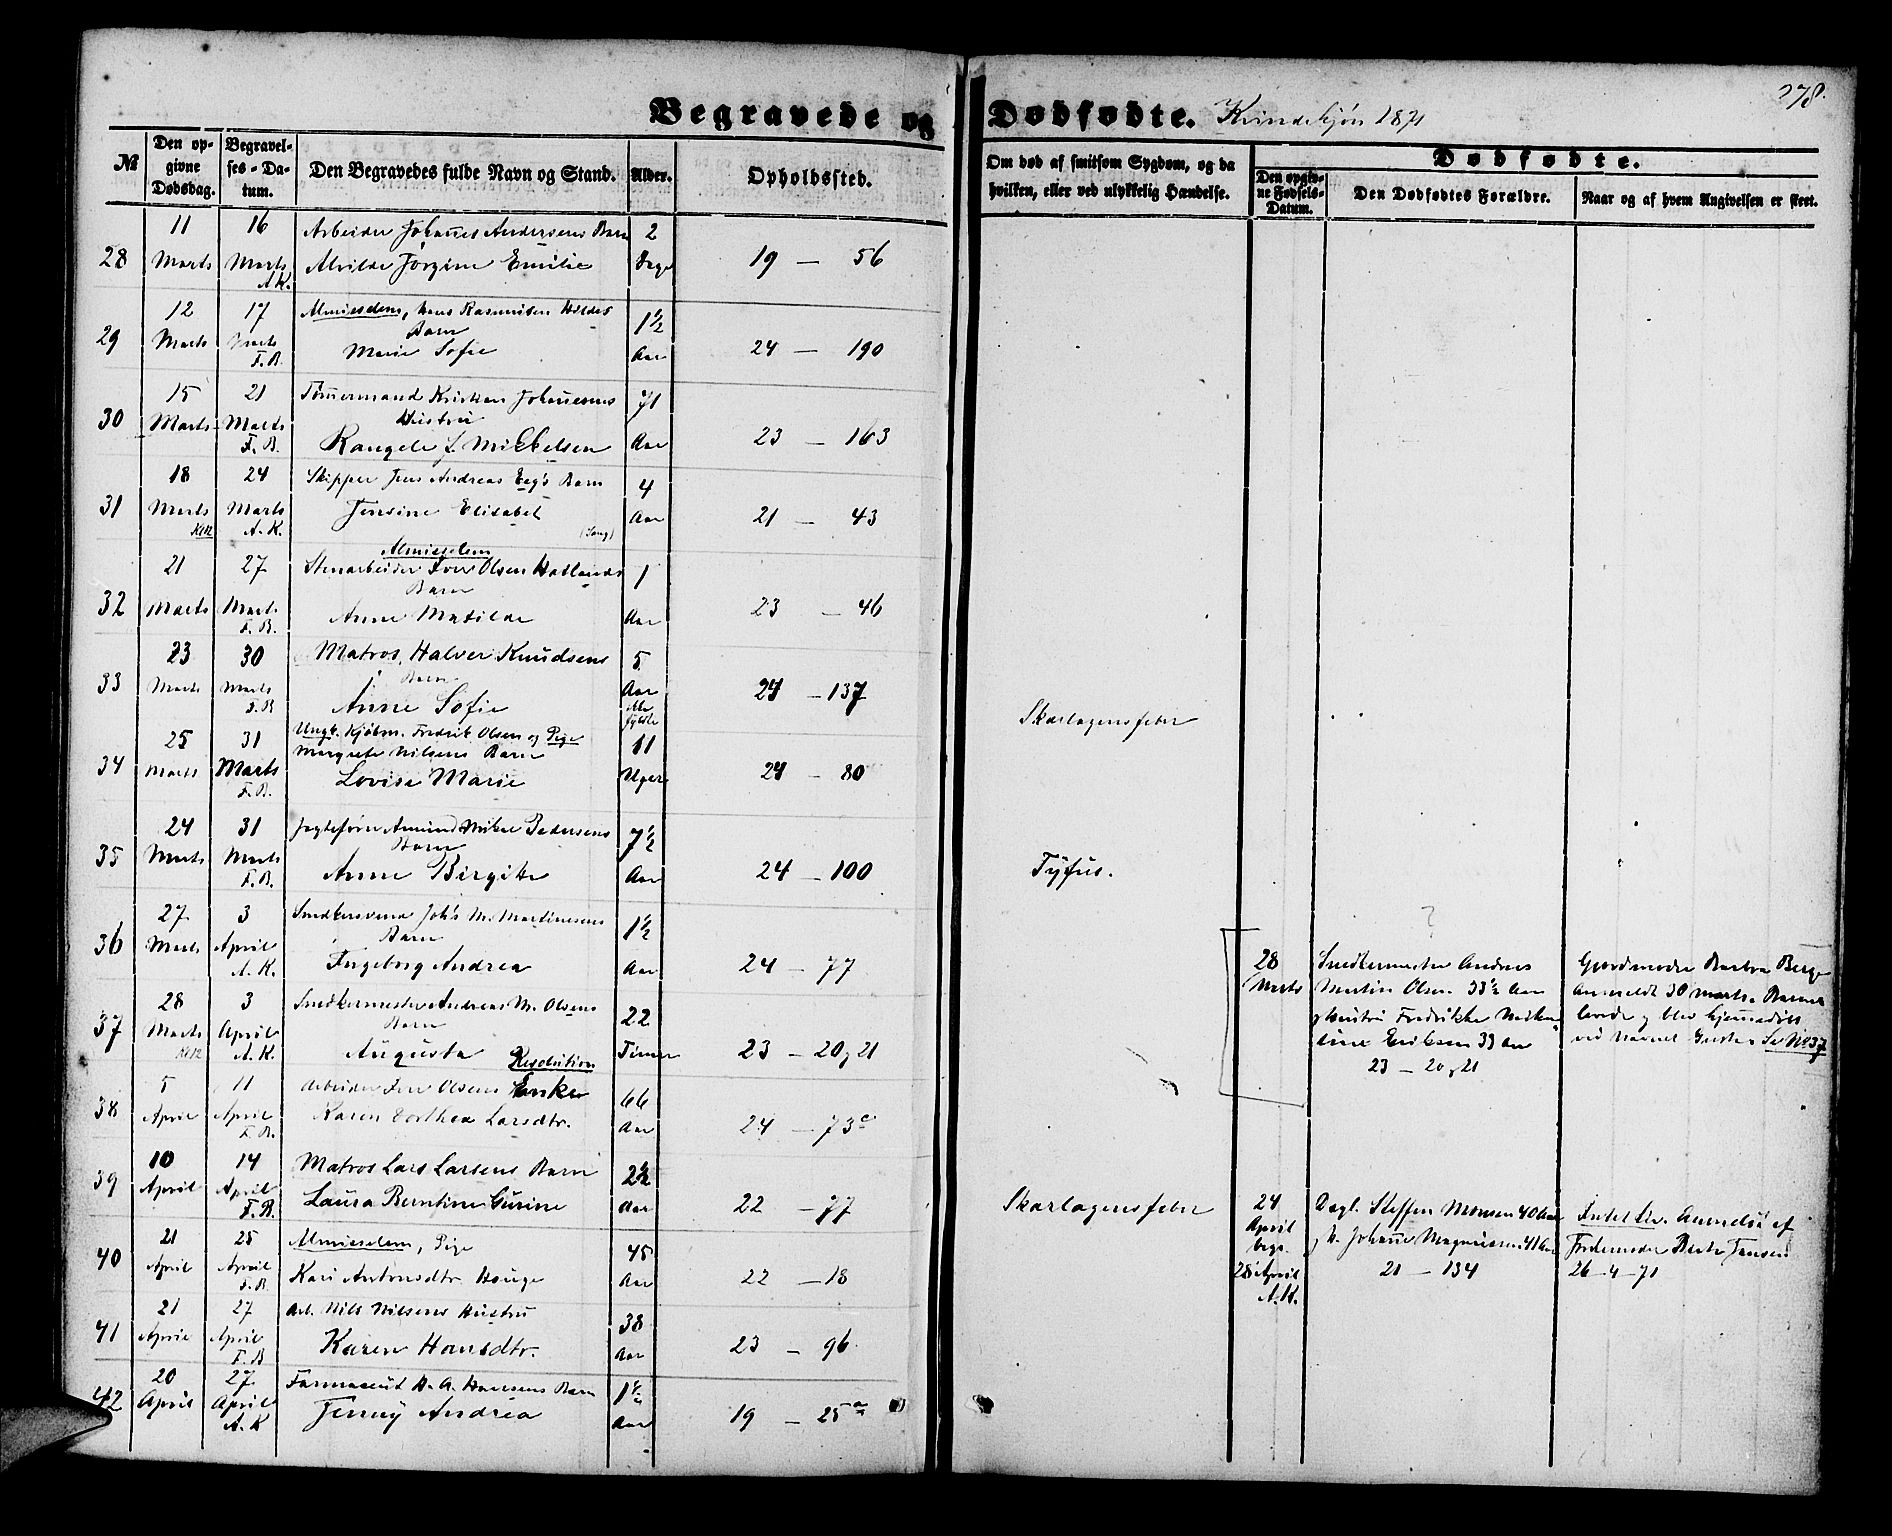 278.
Begravede og Dødfødte. Kvindekjøn 1871
№
Den op-
givne
Dødsdag.
Begravel-
ses-Da-
tum.
Den Begravedes fulde Navn og Stand.
Alder.
Opholdssted.
Om død af smitsom Sygdom, og da
hvilken, eller ved ulykkelig Hændelse.
Dødfødte.
Den opgiv-
ne Fødsels-
Datum.
Den Dødfødtes Forældre.
Naar og af hvem Angivelsen er skeet.
28
11
Marts
16
Marts
A.K.
Arbeider Johannes Andersens Barn
Alvilde Jørgine Emilie
2
Dage
19 — 56
29
12
Marts
17
Marts
F.B.
Almisselem, Hans Rasmusen
Barn
Marie Sofie
1 1/2
Aar
24 — 190
30
15
Marts
21
Marts
F.B.
Tømermand Kristian Johanesens
Hustru
Rangele f. Mikkelsen
71
Aar
23 — 163
31
18
Marts
24
Marts
A.K.
Skipper Jens Andreas Eeg's Barn
Jensine Elisabet
(Sang)
4
Aar
21 — 43
32
21
Marts
27
Marts
F.B.
Almisselem
Stenarbeider Iver Olsen Hatlands
Barn
Anne Matilde
1
Aar
23 — 46
33
23
Marts
30
Marts
F.B
Matros, Halver Knudsens
Barn
Anne Sofie
5
Aar
24 — 137
Skarlagensfeber
34
25
Marts
31
Marts
F.B.
Ungk. Kjøbm. Fredrik Olsen og Pige
Margrete Nilsens Barn
Lovise Marie
11
Uger
24 — 80
35
24
Marts
31
Marts
F.B.
Jagtefører Amund Mikal Pedersens
Barn
Anne Birgitte
7 1/2
Aar
24 — 100
Tyfus.
36
27
Marts
3
April
A.K.
Snedkersvend Joh's M. Martinesens
Barn
Ingeborg Andrea
1 1/2
Aar
24 — 77
37
28
Marts
3
April
A.K.
Snedkermester Andreas M. Olsens
Barn
Augusta
22
Timer
23 — 20 og 21
?
28
Marts
Snedkermester Andreas
Martin Olsen 33 1/2 Aar
og Hustru Fredrikke
Eriksen 33 Aar
23 — 20 og 21
Gjordmoder Barbra Berge
anmeldt 30 marts. Barnet
levede og blev hjemmedøbt
ved navnet Se No 37
38
5
April
11
April
F.B.
Resolution
Arbeider Iver Olsens Enke
Karen Dorthea Larsdtr.
66
Aar
24 — 73c
39
10
April
14
April
F.B.
Matros Lars Larsens Barn
Laura Berntine Gurine
2 1/2
Aar
22 — 77
Skarlagensfeber
24
April
begr.
28 April
A.K.
Dagl. Steffen Monsen 40 Aar
og H. Johanne Magnussen 41 Aar
21 — 134
Intet Liv. Anmeldt af
Jordemoder Berte Jansen
26-4-71
40
21
April
25
April
F.B.
Almisselem, Pige
Kari Antonsdtr. Hauge
45
Aar
22 — 18
41
21
April
27
April
F.B
Arb. Nils Nilsens Hustru
Karen Hansdtr.
38
Aar
23 — 96
42
20
April
27
April
A.K
Farmaceut H. A. Hansens Barn
Jenny Andrea
1 1/2
Aar
19 — 25a